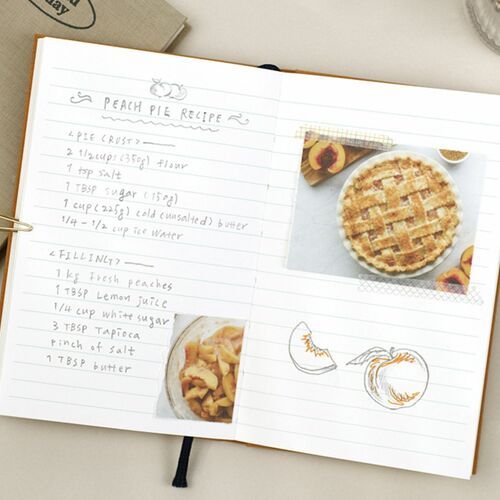 day
PEACH PIE RECIPE
<PIE CRUST>
2 1/2 cups (350g) flour
1 tsp salt
1 TBSP sugar (150g)
1 cup (225g) cold (unsalted) butter
1/4 - 1/2 cup ice water
<FILLING>
1 kg fresh peaches
1 TBSP Lemon juice
1/4 cup white sugar
3 TBSP Tapioca
pinch of salt
1 TBSP butter